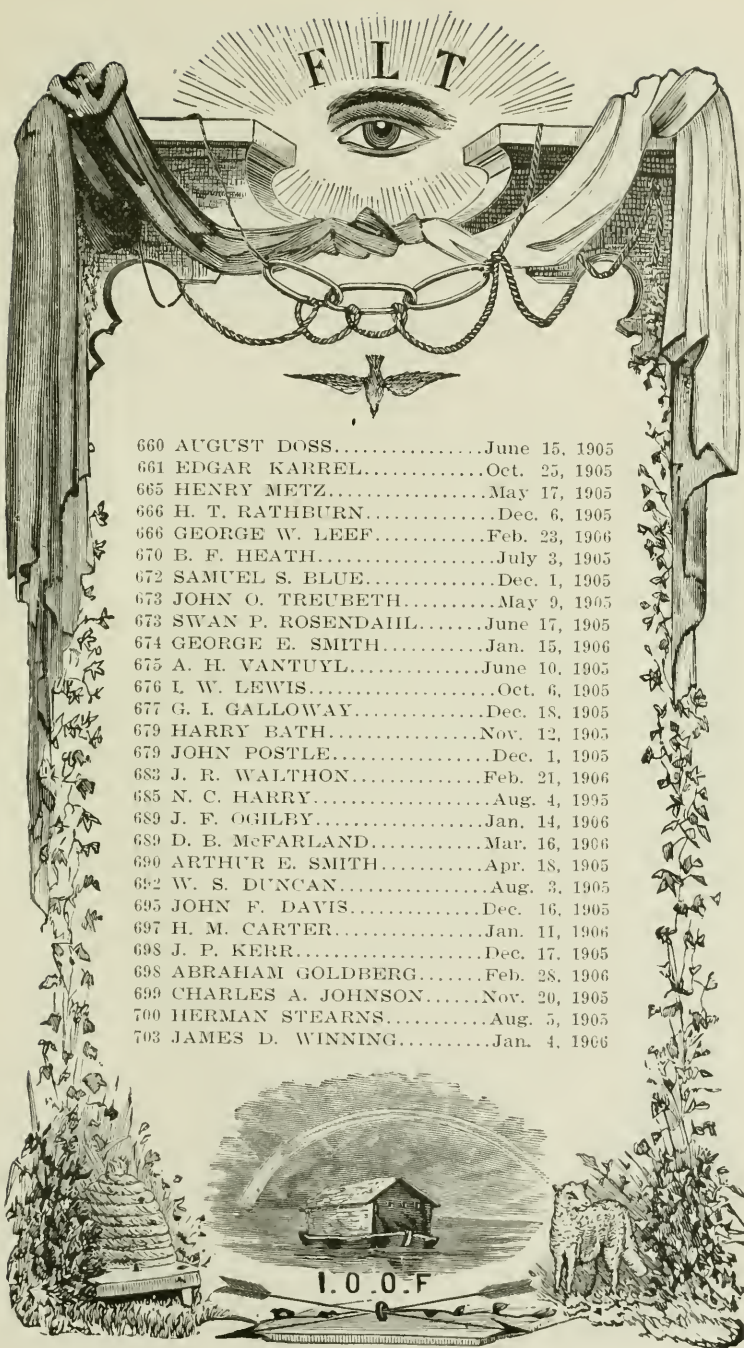 F L T
660 AUGUST DOSS................June 15, 1905
661 EDGAR KARREL.............Oct. 25, 1905
665 HENRY METZ.................May 17, 1905
666 H. T. RATHBURN..............Dec. 6, 1905
666 GEORGE W. LEEF............Feb. 23, 1906
670 B. F. HEATH....................July 3, 1905
672 SAMUEL S. BLUE..............Dec. 1, 1905
673 JOHN O. TREUBETH..........May 9, 1905
673 SWAN P. ROSENDAHL.......June 17, 1905
674 GEORGE E. SMITH...........Jan. 15, 1906
675 A. H. VANTUYL...............June 10, 1905
676 I. W. LEWIS....................Oct. 6, 1905
677 G. I. GALLOWAY..............Dec. 18, 1905
679 HARRY BATH................Nov. 12, 1905
679 JOHN POSTLE.................Dec. 1, 1905
683 J. R. WALTHON..............Feb. 21, 1906
685 N. C. HARRY...................Aug. 4, 1995
689 J. F. OGILBY..................Jan. 14, 1906
689 D. B. McFARLAND............Mar. 16, 1906
690 ARTHUR E. SMITH...........Apr. 18, 1905
692 W. S. DUNCAN.................Aug. 3, 1905
695 JOHN F. DAVIS...............Dec. 16, 1905
697 H. M. CARTER................Jan. 11, 1906
698 J. P. KERR.....................Dec. 17. 1905
698 ABRAHAM GOLDBERG.......Feb. 28, 1906
699 CHARLES A. JOHNSON......Nov. 20, 1905
700 HERMAN STEARNS............Aug. 5, 1905
703 JAMES D. WINNING..........Jan. 4, 1906
I.O.O.F